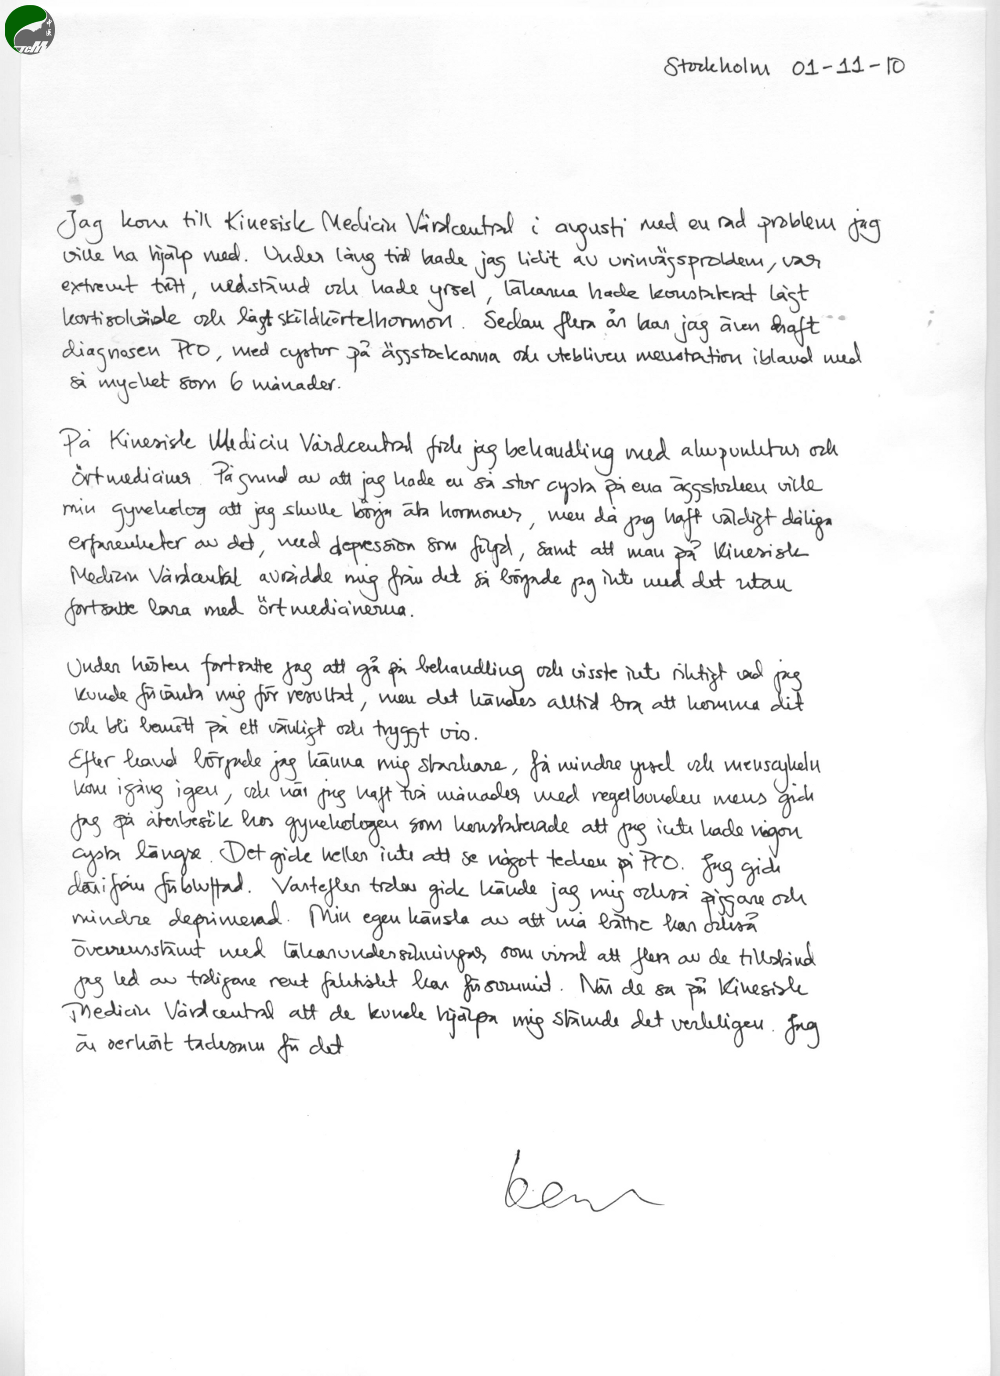 中医
TCM
Stockholm 01-11-10
Jag kom till Kinesisk Medicin Vårdcentral i augusti med en rad problem jag
ville ha hjälp med. Under lång tid hade jag lidit av urinvägsproblem, var
extremt trött, nedstämd och hade yrsel, läkarna hade konstaterat lågt
kortisolvärde och lågt sköldkörtelhormon. Sedan flera år har jag även haft
diagnosen PCO, med cystor på äggstockarna och utebliven menstration ibland med
så mycket som 6 månader.
På Kinesisk Medicin Vårdcentral fick jag behandling med akupunktur och
örtmediciner. På grund av att jag hade en så stor cysta på ena äggstocken ville
min gynekolog att jag skulle börja äta hormoner, men då jag haft väldigt dåliga
erfarenheter av det, med depression som följd, samt att man på Kinesisk
Medicin Vårdcentral avrådde mig från det så började jag inte med det utan
fortsatte bara med örtmedicinerna.
Under hösten fortsatte jag att gå på behandling och visste inte riktigt vad jag
kunde förvänta mig för resultat, men det kändes alltid bra att komma dit
och bli bemött på ett vänligt och tryggt vis.
Efter hand började jag känna mig starkare, få mindre yrsel och menscykeln
kom igång igen, och när jag haft två månader med regelbunden mens gick
jag på återbesök hos gynekologen som konstaterade att jag inte hade någon
cysta längre. Det gick heller inte att se något tecken på PCO. Jag gick
därifrån förbluffad. Vartefter tiden gick kände jag mig också piggare och
mindre deprimerad. Min egen känsla av att må bättre har också
överensstämt med läkarundersökningar som visat att flera av de tillstånd
jag led av tidigare rent faktiskt har försvunnit. När de sa på Kinesisk
Medicin Vårdcentral att de kunde hjälpa mig stämde det verkligen. Jag
är oerhört tacksam för det